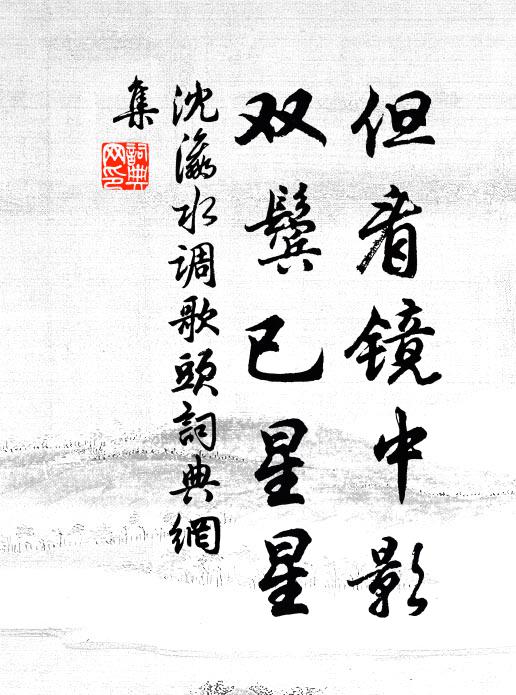 但看镜中影
双鬓已星星
沈瀛水调歌头詞典網
集
詞典
网印